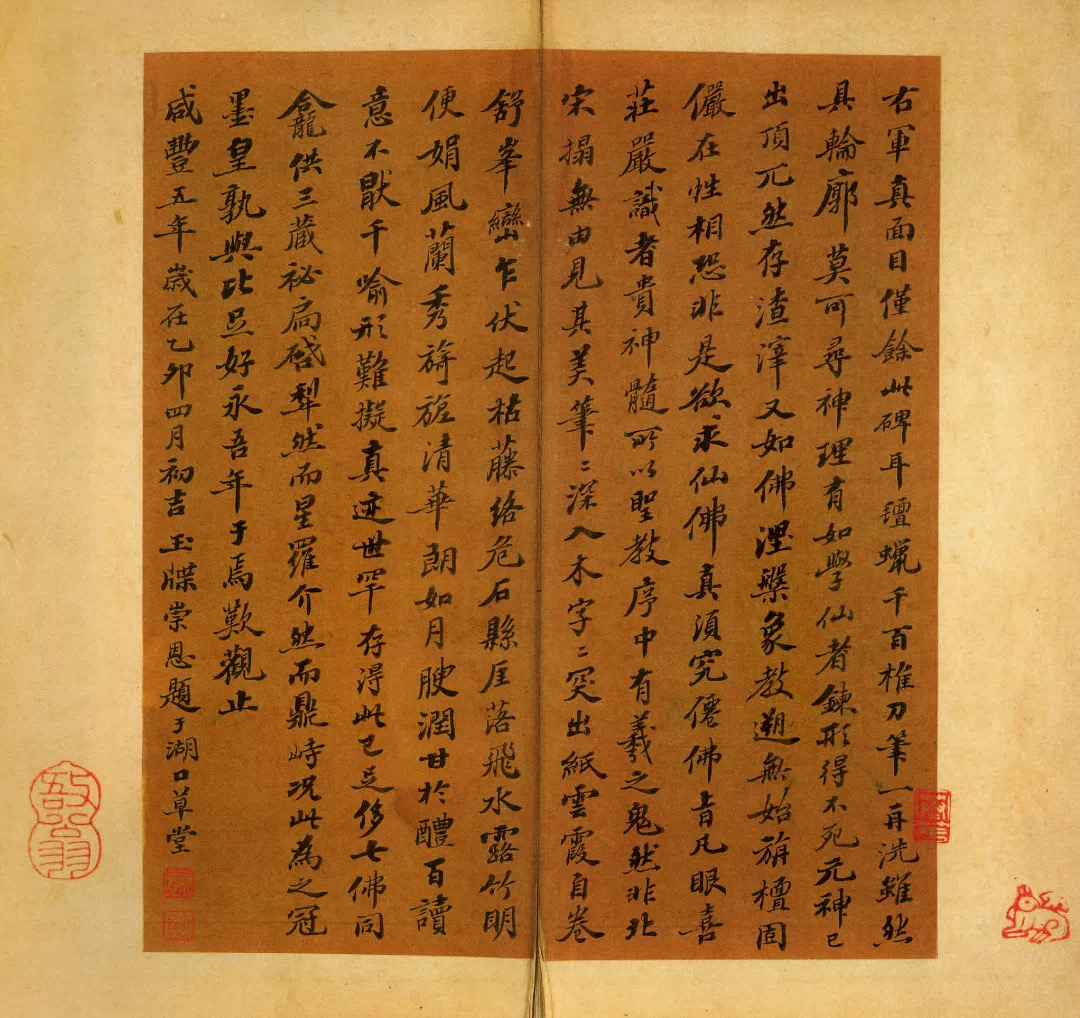 右軍真面目僅餘此碑耳氊蠟千百椎刀筆一再洗雖然
具輪廓莫可尋神理有如學仙者鍊形得不死元神已
出頂兀然存渣滓又如佛涅槃象教遡無始旃檀固
儼在性相恐非是欲求仙佛真須究僊佛旨凡眼喜
莊嚴識者貴神髓所以聖教序中有羲之鬼然非北
宋搨無由見其美筆〻深入木字〻突出紙雲霞自卷
舒峯巒乍伏起枯藤絡危石縣厓落飛水露竹明
便娟風蘭秀旖旎清華朗如月腴潤甘於醴百讀
意不猒千喻形難擬真迹世罕存得此已足侈七佛同
龕供三藏祕扃啟犁然而星羅介然而鼎峙況此為之冠
墨皇孰與比呂好永吾年于焉歎觀止
咸豐五年歲在乙卯四月初吉玉牒崇恩題于湖口草堂